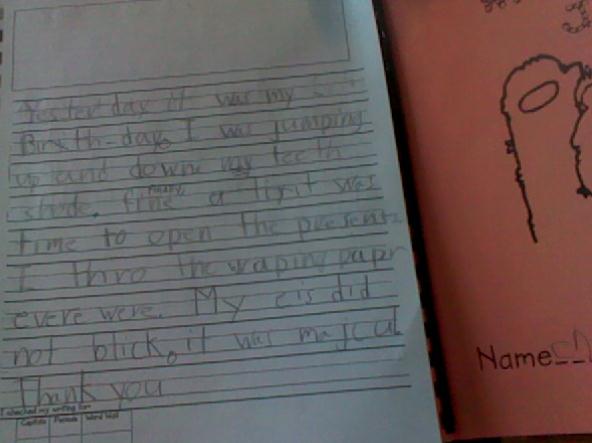 Yesterday it was my
Birth-day. I was jumping
up and down my teeth
shode. finely a thrit was
time to open the presents
I thro the waping papr
evere were. My eis did
not blick. it was majcul
Thank you
I checked my writing for:
Capitals Periods Word Wall
Name